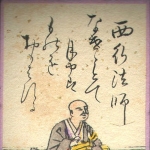 西行法師
なげけとて
月やは
ものを
おもはする